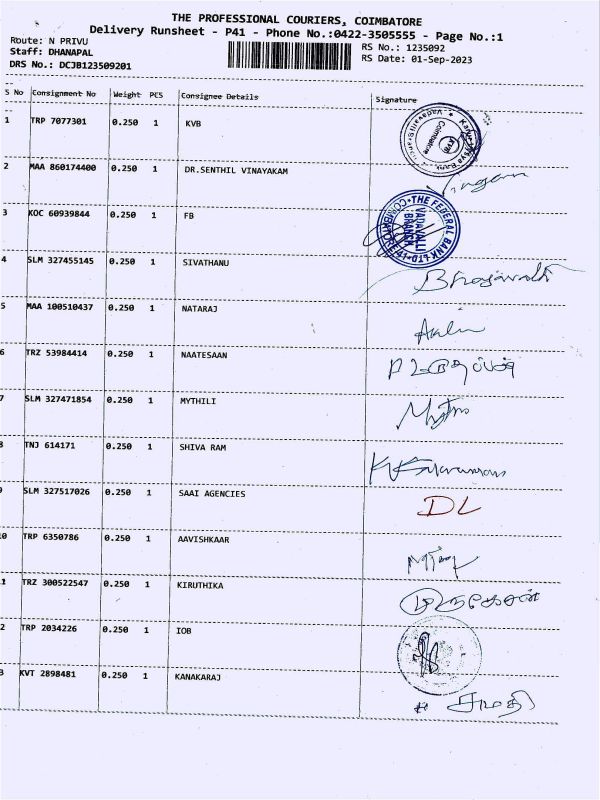 THE PROFESSIONAL COURIERS, COIMBATORE
Delivery Runsheet - P41 - Phone No.:0422-3505555 - Page No.:1
Route: N PRIVU
RS No.: 1235092
Staff: DHANAPAL
RS Date: 01-Sep-2023
DRS No.: DCJB123509201
S No Consignment No Weight PCS Consignee Details Signature
1 TRP 7077301 0.250 1 KVB
2 MAA 860174400 0.250 1 DR.SENTHIL VINAYAKAM
3 KOC 60939844 0.250 1 FB
THE FEDERAL BANK LTD
VADAVALLI
BRANCH
COIMBATORE
4 SLM 327455145 0.250 1 SIVATHANU
5 MAA 100510437 0.250 1 NATARAJ
6 TRZ 53984414 0.250 1 NAATESAAN
7 SLM 327471854 0.250 1 MYTHILI
8 TNJ 614171 0.250 1 SHIVA RAM
9 SLM 327517026 0.250 1 SAAI AGENCIES DL
10 TRP 6350786 0.250 1 AAVISHKAAR
11 TRZ 300522547 0.250 1 KIRUTHIKA
2 TRP 2034226 0.250 1 IOB
3 KVT 2898481 0.250 1 KANAKARAJ